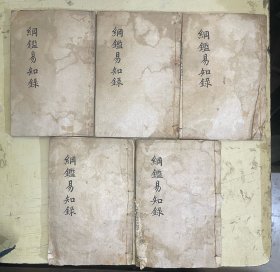 綱鑑易知錄
綱鑑易知錄
綱鑑易知錄
綱鑑易知錄
綱鑑易知錄